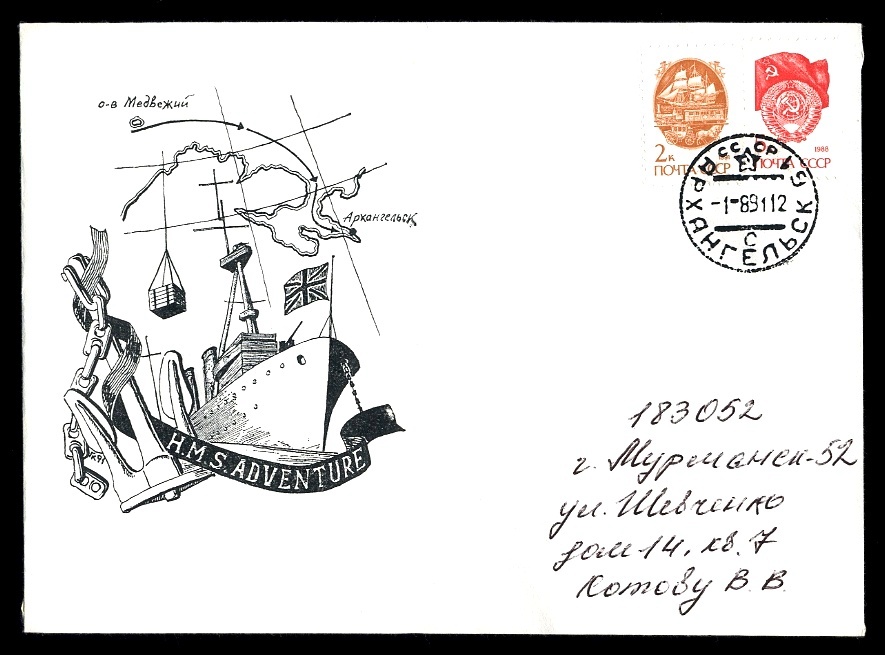 о-в Медвежий
Архангельск
H.M.S. ADVENTURE
2к
ПОЧТА СССР
1988
ПОЧТА СССР
АРХАНГЕЛЬСК
183052
г. Мурманск-52
ул. Шевченко
дом 14, кв. 7
Котову В. В.